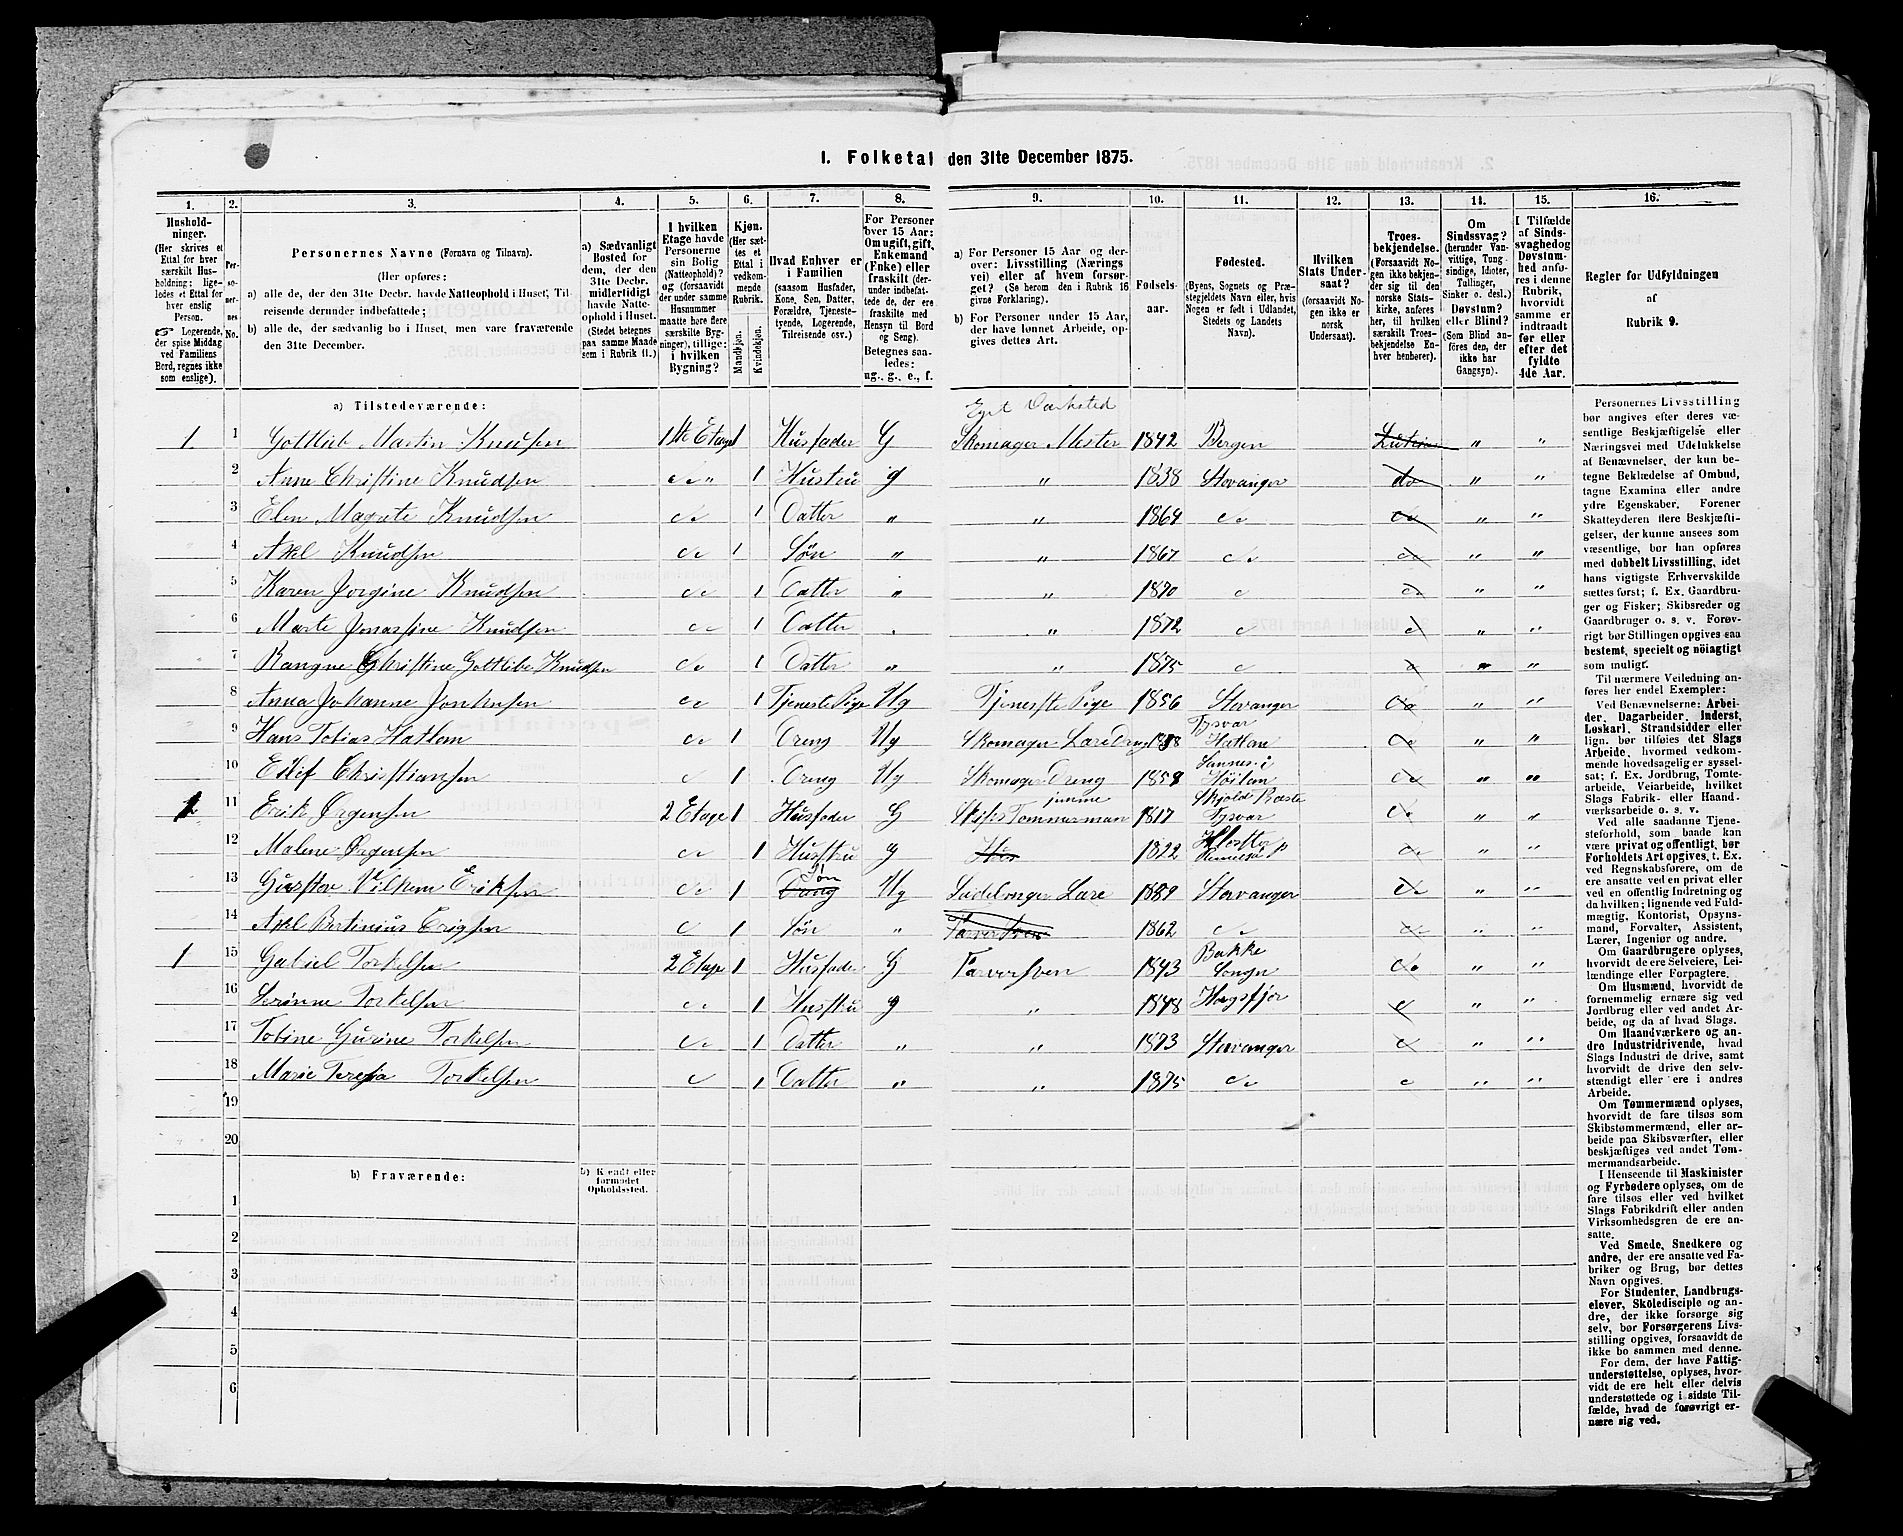 1. Folketal den 31te December 1875.
1. 2. 3. 4. 5. 6. 7. 8. 9. 10. 11. 12. 13. 14. 15. 16.
Hushold-
ninger.
(Her skrives et
Ettal for hver
særskilt Hus-
holdning; lige-
ledes et Ettal for
hver enslig
Person.
Logerende,
der spise Middag
ved Familiens
Bord, regnes ikke
som enslige).
Per-
so-
ner-
nes
No.
Personernes Navne (Fornavn og Tilnavn).
(Her opføres:
a) alle de, der den 31te Decbr. havde Natteophold i Huset, Til-
reisende derunder indbefattede;
b) alle de, der sædvanlig bo i Huset, men vare fraværende
den 31te December.
a) Sædvanligt
Bosted for
dem, der den
31te Decbr.
midlertidigt
havde Natte-
ophold i Huset.
(Stedet betegnes
paa samme Maade
som i Rubrik 11.)
I hvilken
Etage havde
Personerne
sin Bolig
(Natteophold)?
og (forsaavidt
der under samme
Husnummer
maatte høre flere
særskilte Byg-
ninger), tillige:
i hvilken
Bygning?
Kjøn.
(Her sæt-
tes et
Ettal i
vedkom-
mende
Rubrik.
Mandkjøn.
Kvindekjøn.
Hvad Enhver er
i Familien
(saasom Husfader,
Kone, Søn, Datter,
Forældre, Tjeneste-
tyende, Logerende,
Tilreisende osv.)
For Personer
over 15 Aar:
Om ugift, gift,
Enkemand
(Enke) eller
fraskilt (der-
under indbefat-
tede de, der ere
fraskilte med
Hensyn til Bord
og Seng).
Betegnes saa-
ledes:
ug., g., e., f.
a) For Personer 15 Aar og der-
over: Livsstilling (Nærings
vei) eller af hvem forsør-
get? (Se herom den i Rubrik 16
givne Forklaring).
b) For Personer under 15 Aar,
der have lønnet Arbeide, op-
gives dettes Art.
Fødsels-
aar.
Fødested.
(Byens, Sognets og Præ-
stegjeldets Navn eller, hvis
Nogen er født i Udlandet,
Stedets og Landets
Navn).
Hvilken
Stats Under-
saat?
(forsaavidt No-
gen ikke er
norsk
Undersaat).
Troes-
bekjendelse.
(Forsaavidt No-
gen ikke bekjen-
der sig til den
norske Stats-
kirke, anføres
her, til hvilken
særskilt Troes-
bekjendelse En-
hver henhører).
Om
Sindssvag?
(herunder Van-
vittige, Tung-
sindige, Idioter,
Tullinger,
Sinker o. desl.)
Døvstum?
eller Blind?
(Som Blind an-
føres den, der
ikke har
Gangsyn).
I Tilfælde
af Sinds-
svaghed og
Døvstum-
hed anfø-
res i denne
Rubrik,
hvorvidt
samme er
indtraadt
før eller
efter det
fyldte
4de Aar.
Regler for Udfyldningen
af
Rubrik 9.
a) Tilstedeværende:
Eget Værksted
1 1 Gottlieb Martin Knudsen 1ste Etage 1 Husfader G Skomager Mester 1842 Bergen " "
2 Anne Christine Knudsen do " 1 Hustru g " 1838 Stavanger do " "
3 Elen Magrete Knudsen do 1 Datter " " 1864 do do " "
4 Axel Knudsen do 1 Søn " " 1867 do do " "
5 Karen Jørgine Knudsen do 1 Datter " " 1870 do do " "
6 Marte Jonassine Knudsen do 1 Datter " " 1872 do do " "
7 Rangne Christine Gottlibe Knudsen do 1 Datter " " 1875 do do " "
8 Anna Johanne do 1 Tjeneste Pige Ug Tjeneste Pige 1856 Stavanger do " "
Tysvær
9 Hans Tobias Hatlem do 1 Dreng Ug Skomager Lære Dreng do " "
Sannes i
10 Eilif Christiansen do 1 Dreng Ug Skomager Dreng 1858 do " "
Skjolds Præste
11 Erik Ørgensen 2 Etage 1 Husfader G Skibs Tømmerman 1817 Tysvær do " "
12 Malene Ørgensen do 1 Hustru g Hus 1822 Kloster do " "
Søn
13 Gustav Vilhem Eriksen do 1 Dreng Ug Sadelmager Lære Stavanger do " "
14 Axel Bertinius Erigsen do 1 Søn " Farversven 1862 do do " "
Bakke
1 15 Gabriel Torkelsen 2 Etage 1 Husfader G Farversven 1843 Songn do " "
16 Serinne Torkelsen do 1 Hustru g " 1848 Høgsfjor do " "
17 Tobine Gurine Torkelsen do 1 Datter " " 1873 Stavanger do " "
18 Marie Teresia Torkelsen do 1 Datter " " 1875 do do " "
19
20
b) Fraværende:
b) Kjendt eller
formodet
Opholdssted.
1
2
3
4
5
6
Personernes Livsstilling
bør angives efter deres væ-
sentlige Beskjæftigelse eller
Næringsvei med Udelukkelse
af Benævnelser, der kun be-
tegne Beklædelse af Ombud,
tagne Examina eller andre
ydre Egenskaber. Forener
Skatteyderen flere Beskjæfti-
gelser, der kunne ansees som
væsentlige, bør han opføres
med dobbelt Livsstilling, idet
hans vigtigste Erhvervskilde
sættes først; f. Ex. Gaardbru-
ger og Fisker; Skibsreder og
Gaardbruger o. s. v. Forøv-
rigt bør Stillingen opgives saa
bestemt, specielt og nøiagtigt
som muligt.
Til nærmere Veiledning an-
føres her endel Exempler:
Ved Benævnelserne: Arbei-
der, Dagarbeider, Inderst,
Løskarl, Strandsidder eller
lign. bør tilføies det Slags
Arbeide, hvormed vedkom-
mende hovedsagelig er syssel-
sat; f. Ex. Jordbrug, Tomte-
arbeide, Veiarbeide, hvilket
Slags Fabrik- eller Haand-
værksarbeide o. s. v.
Ved alle saadanne Tjene-
steforhold, som baade kan
være privat og offentligt, bør
Forholdets Art opgives, t. Ex.
ved Regnskabsførere, om de
ere ansatte ved en privat eller
ved en offentlig Indretning og
da hvilken; lignende ved Fuld-
mægtig, Kontorist, Opsyns-
mand, Forvalter, Assistent,
Lærer, Ingeniør og andre.
Om Gaardbrugere oplyses,
hvorvidt de ere Selveiere, Lei-
lændinge eller Forpagtere.
Om Husmænd, hvorvidt de
fornemmelig ernære sig ved
Jordbrug eller ved andet Ar-
beide, og da af hvad Slags.
Om Haandværkere og an-
dre Industridrivende, hvad
Slags Industri de drive, samt
hvorvidt de drive den selv-
stændigt eller ere i andres
Arbeide.
Om Tømmermænd oplyses,
hvorvidt de fare tilsøs som
Skibstømmermænd, eller ar-
beide paa Skibsværfter, eller
beskjæftiges ved andet Tøm-
mermandsarbeide.
I Henseende til Maskinister
og Fyrbødere oplyses, om de
fare tilsøs eller ved hvilket
Slags Fabrikdrift eller anden
Virksomhedsgren de ere an-
satte.
Ved Smede, Snedkere og
andre, der ere ansatte ved Fa-
briker og Brug, bør dettes
Navn opgives.
For Studenter, Landbrugs-
elever, Skoledisciple og an-
dre, der ikke forsørge sig
selv, bør Forsørgerens Livs-
stilling opgives, forsaavidt de
ikke bo sammen med denne.
For dem, der have Fattig-
understøttelse, oplyses, hvor-
vidt de ere helt eller delvis
understøttede og i sidste Til-
fælde, hvad de forøvrigt er-
nære sig ved.